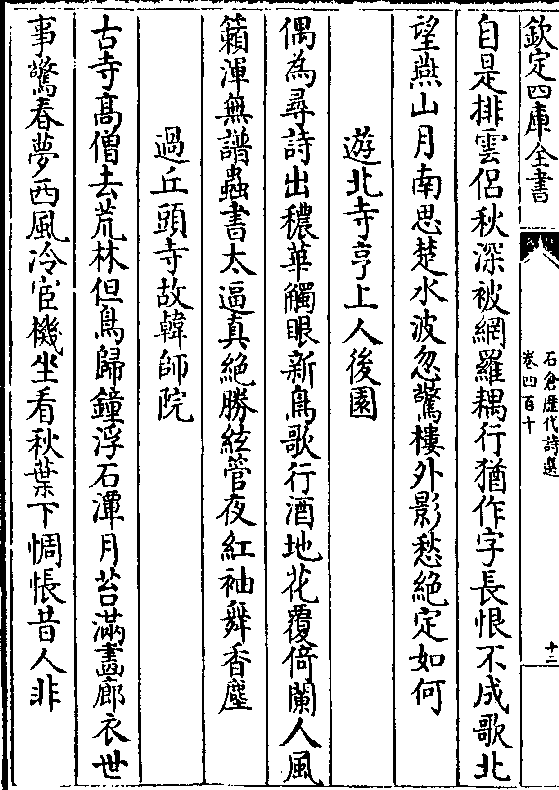 欽定四庫全書
石倉歷代詩選
卷四百十
十三
自是排雲侣秋深被網羅耦行猶作字長恨不成歌北
望燕山月南思楚水波忽驚樓外影愁絶定如何
遊北寺亨上人後園
偶為尋詩出穠華觸眼新鳥歌行酒地花覆倚闌人風
籟渾無譜蟲書太逼真絶勝絃管夜紅袖舞香塵
過丘頭寺故韓師院
古寺髙僧去荒林但鳥歸鐘浮石潭月苔滿畫廊衣世
事驚春夢西風冷宦機坐看秋葉下惆悵昔人非